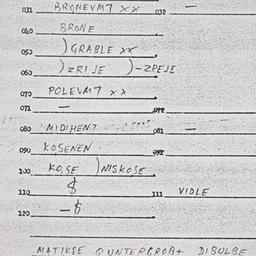 031 BRONEVMT XX 032 —
040 BRONE
050 )GRABLE XX
060 )ZRIJE )-ZPEJE
070 POLEVMT XX
071 — 072
080 MIDIHENT 081 —
090 KOSENEN 092
100 KO,SE )NISKOSE
110 $ 111 VIDLE
120 -$
MATIKSE QUNTERGROB+ DIBULBE